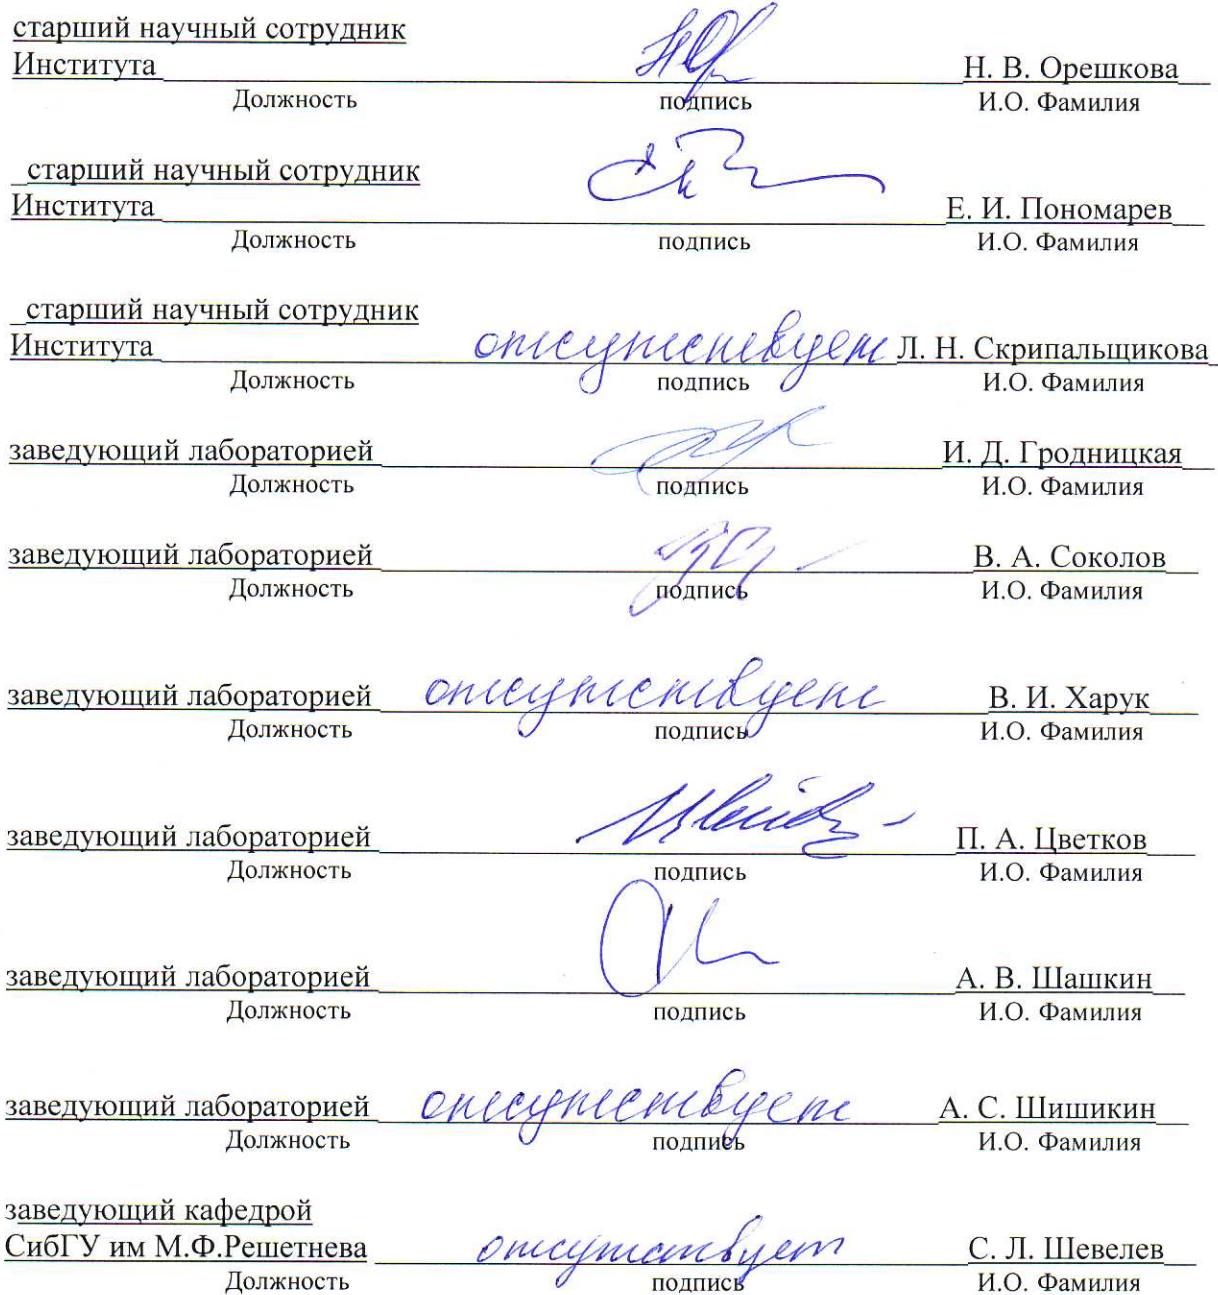 старший научный сотрудник
Института Н. В. Орешкова
Должность подпись И.О. Фамилия
старший научный сотрудник
Института Е. И. Пономарев
Должность подпись И.О. Фамилия
старший научный сотрудник
Института отсутствует Л. Н. Скрипальщикова
Должность подпись И.О. Фамилия
заведующий лабораторией И. Д. Гродницкая
Должность подпись И.О. Фамилия
заведующий лабораторией В. А. Соколов
Должность подпись И.О. Фамилия
заведующий лабораторией отсутствует В. И. Харук
Должность подпись И.О. Фамилия
заведующий лабораторией П. А. Цветков
Должность подпись И.О. Фамилия
заведующий лабораторией А. В. Шашкин
Должность подпись И.О. Фамилия
заведующий лабораторией отсутствует А. С. Шишикин
Должность подпись И.О. Фамилия
заведующий кафедрой
СибГУ им М.Ф.Решетнева отсутствует С. Л. Шевелев
Должность подпись И.О. Фамилия